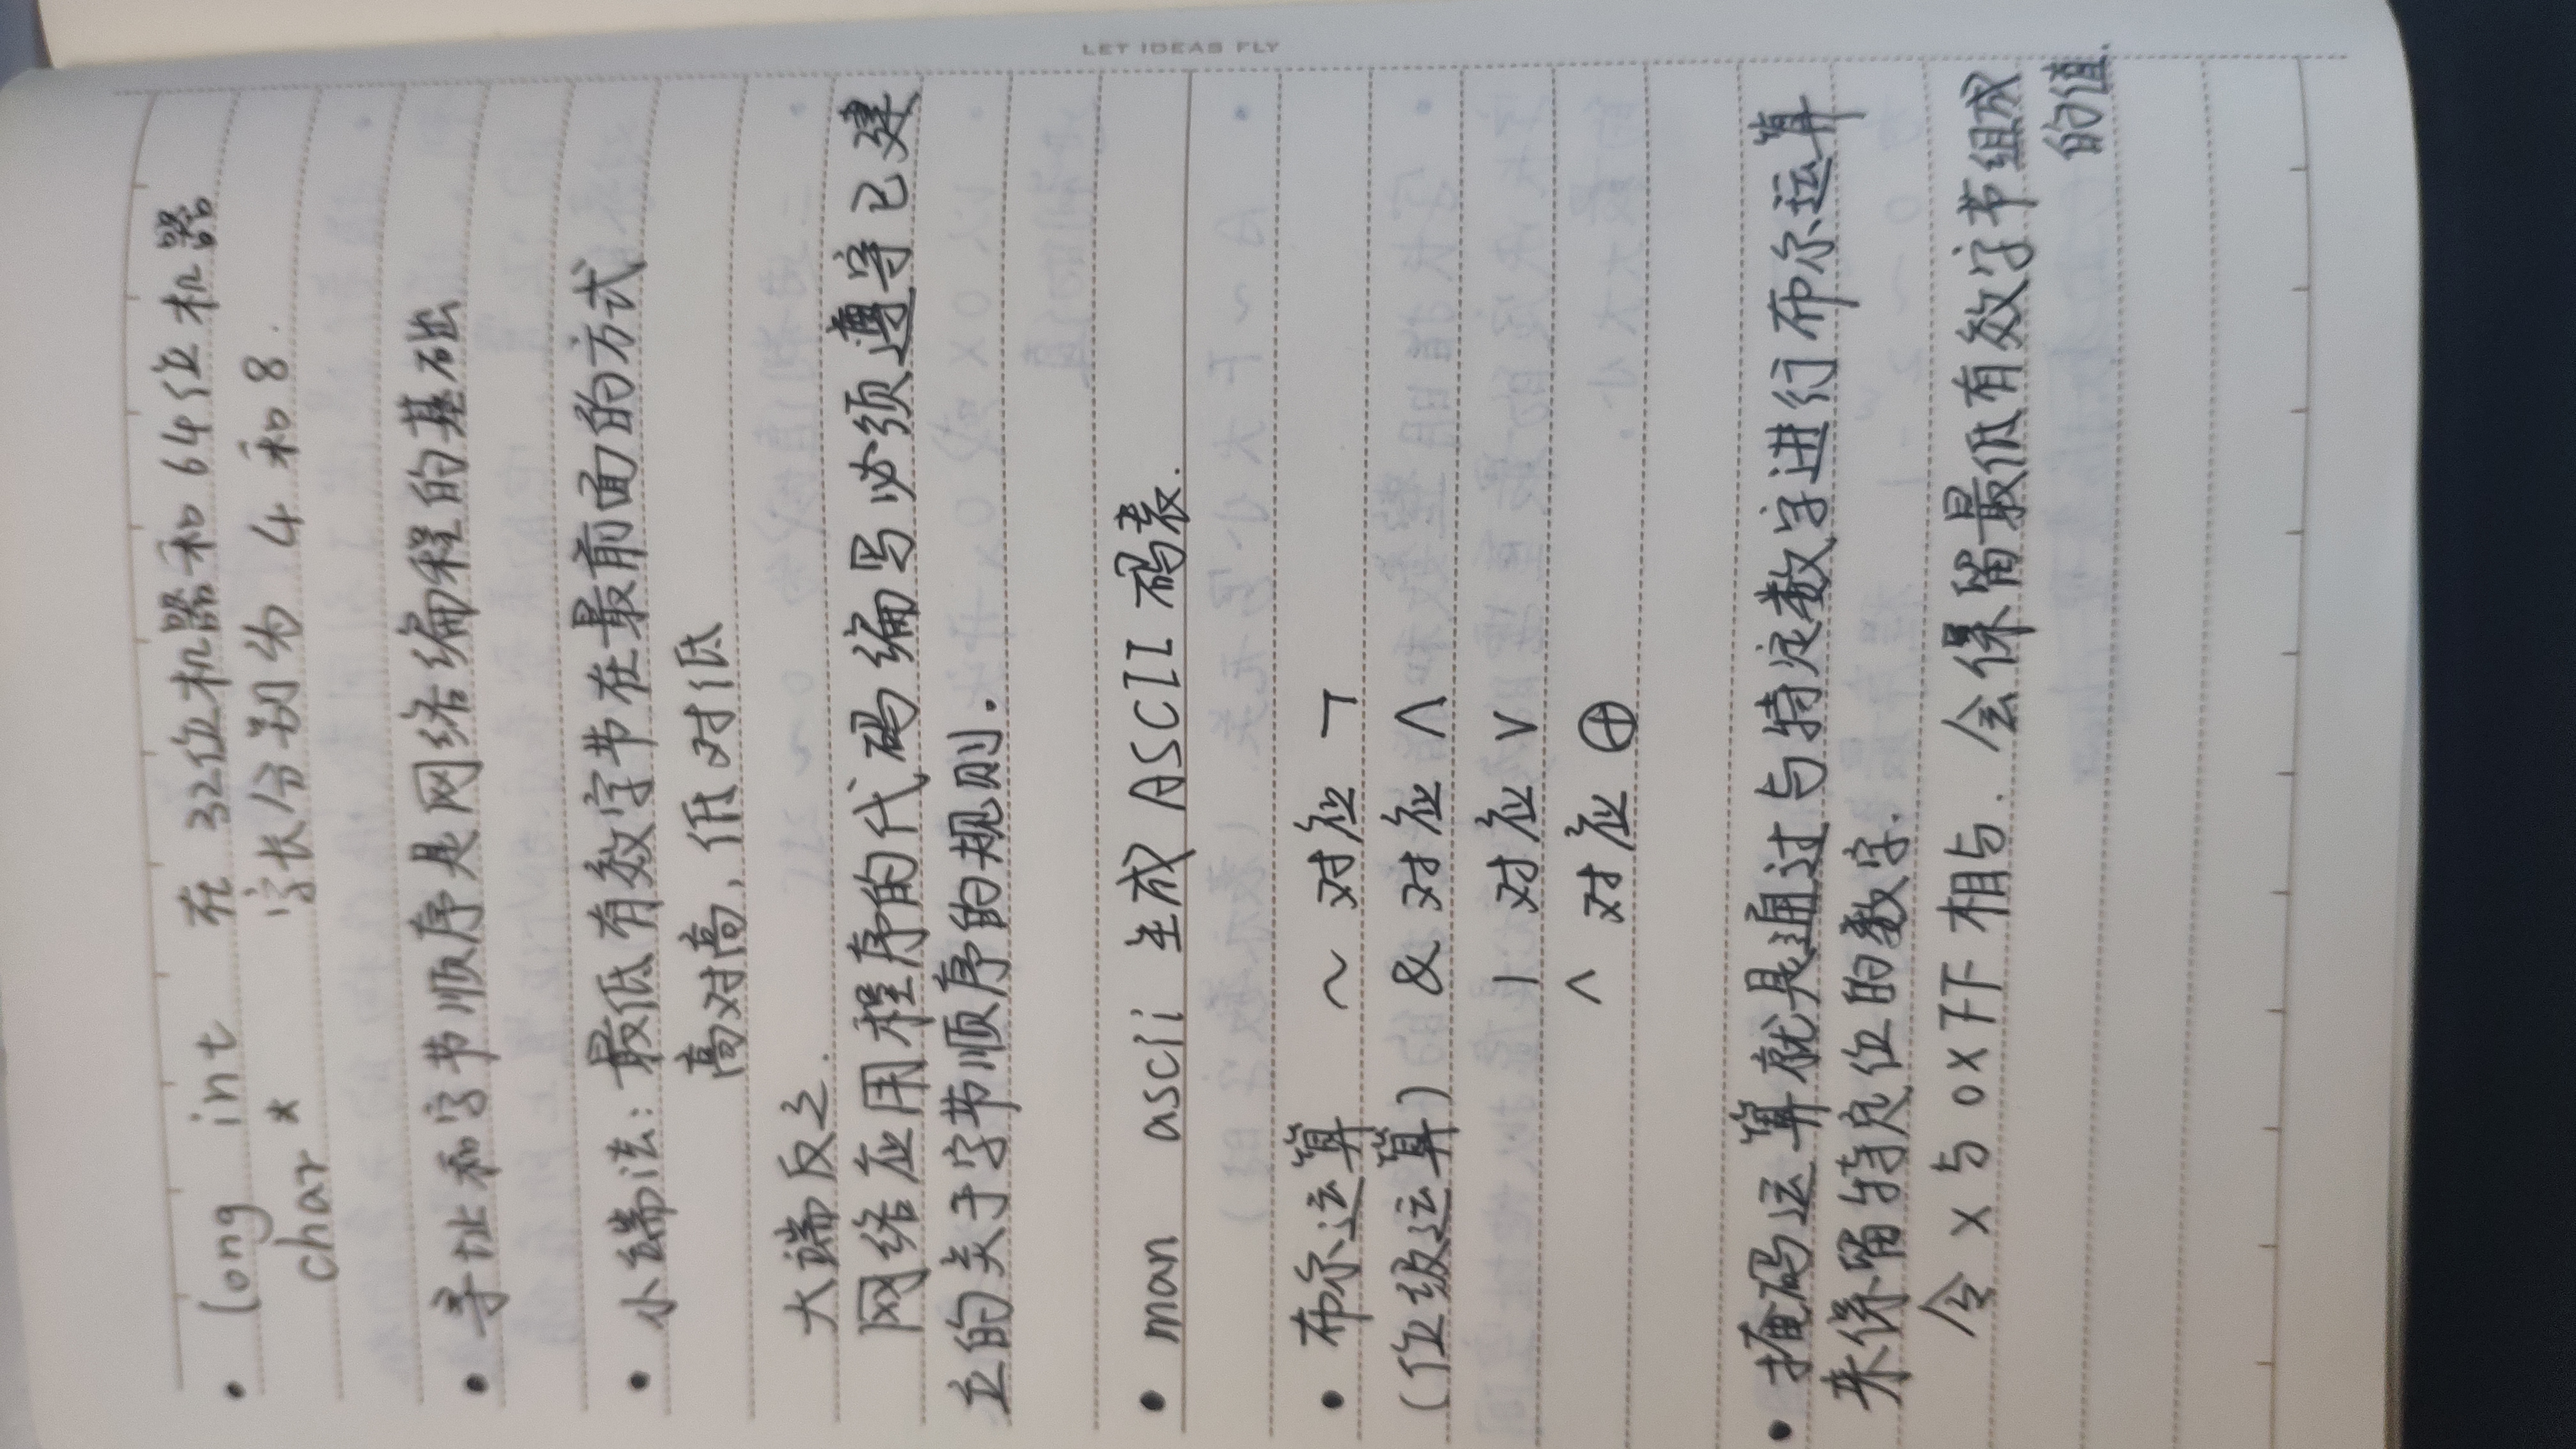 LET IDEAS FLY
• long int 在 32位机器和 64位机器
char * 字长分别为 4 和 8.
• 寻址和字节顺序是网络编程的基础
• 小端法: 最低有效字节在最前面的方式
高对高, 低对低
大端反之.
网络应用程序的代码编写必须遵守已建
立的关于字节顺序的规则.
• man ascii 生成 ASCII 码表.
• 布尔运算 ~ 对应 ¬
(位级运算) & 对应 ∧
| 对应 ∨
^ 对应 ⊕
• 掩码运算就是通过与特定数字进行布尔运算
来保留特定位的数字.
令 x 与 0xFF 相与. 会保留最低有效字节组成
的值.